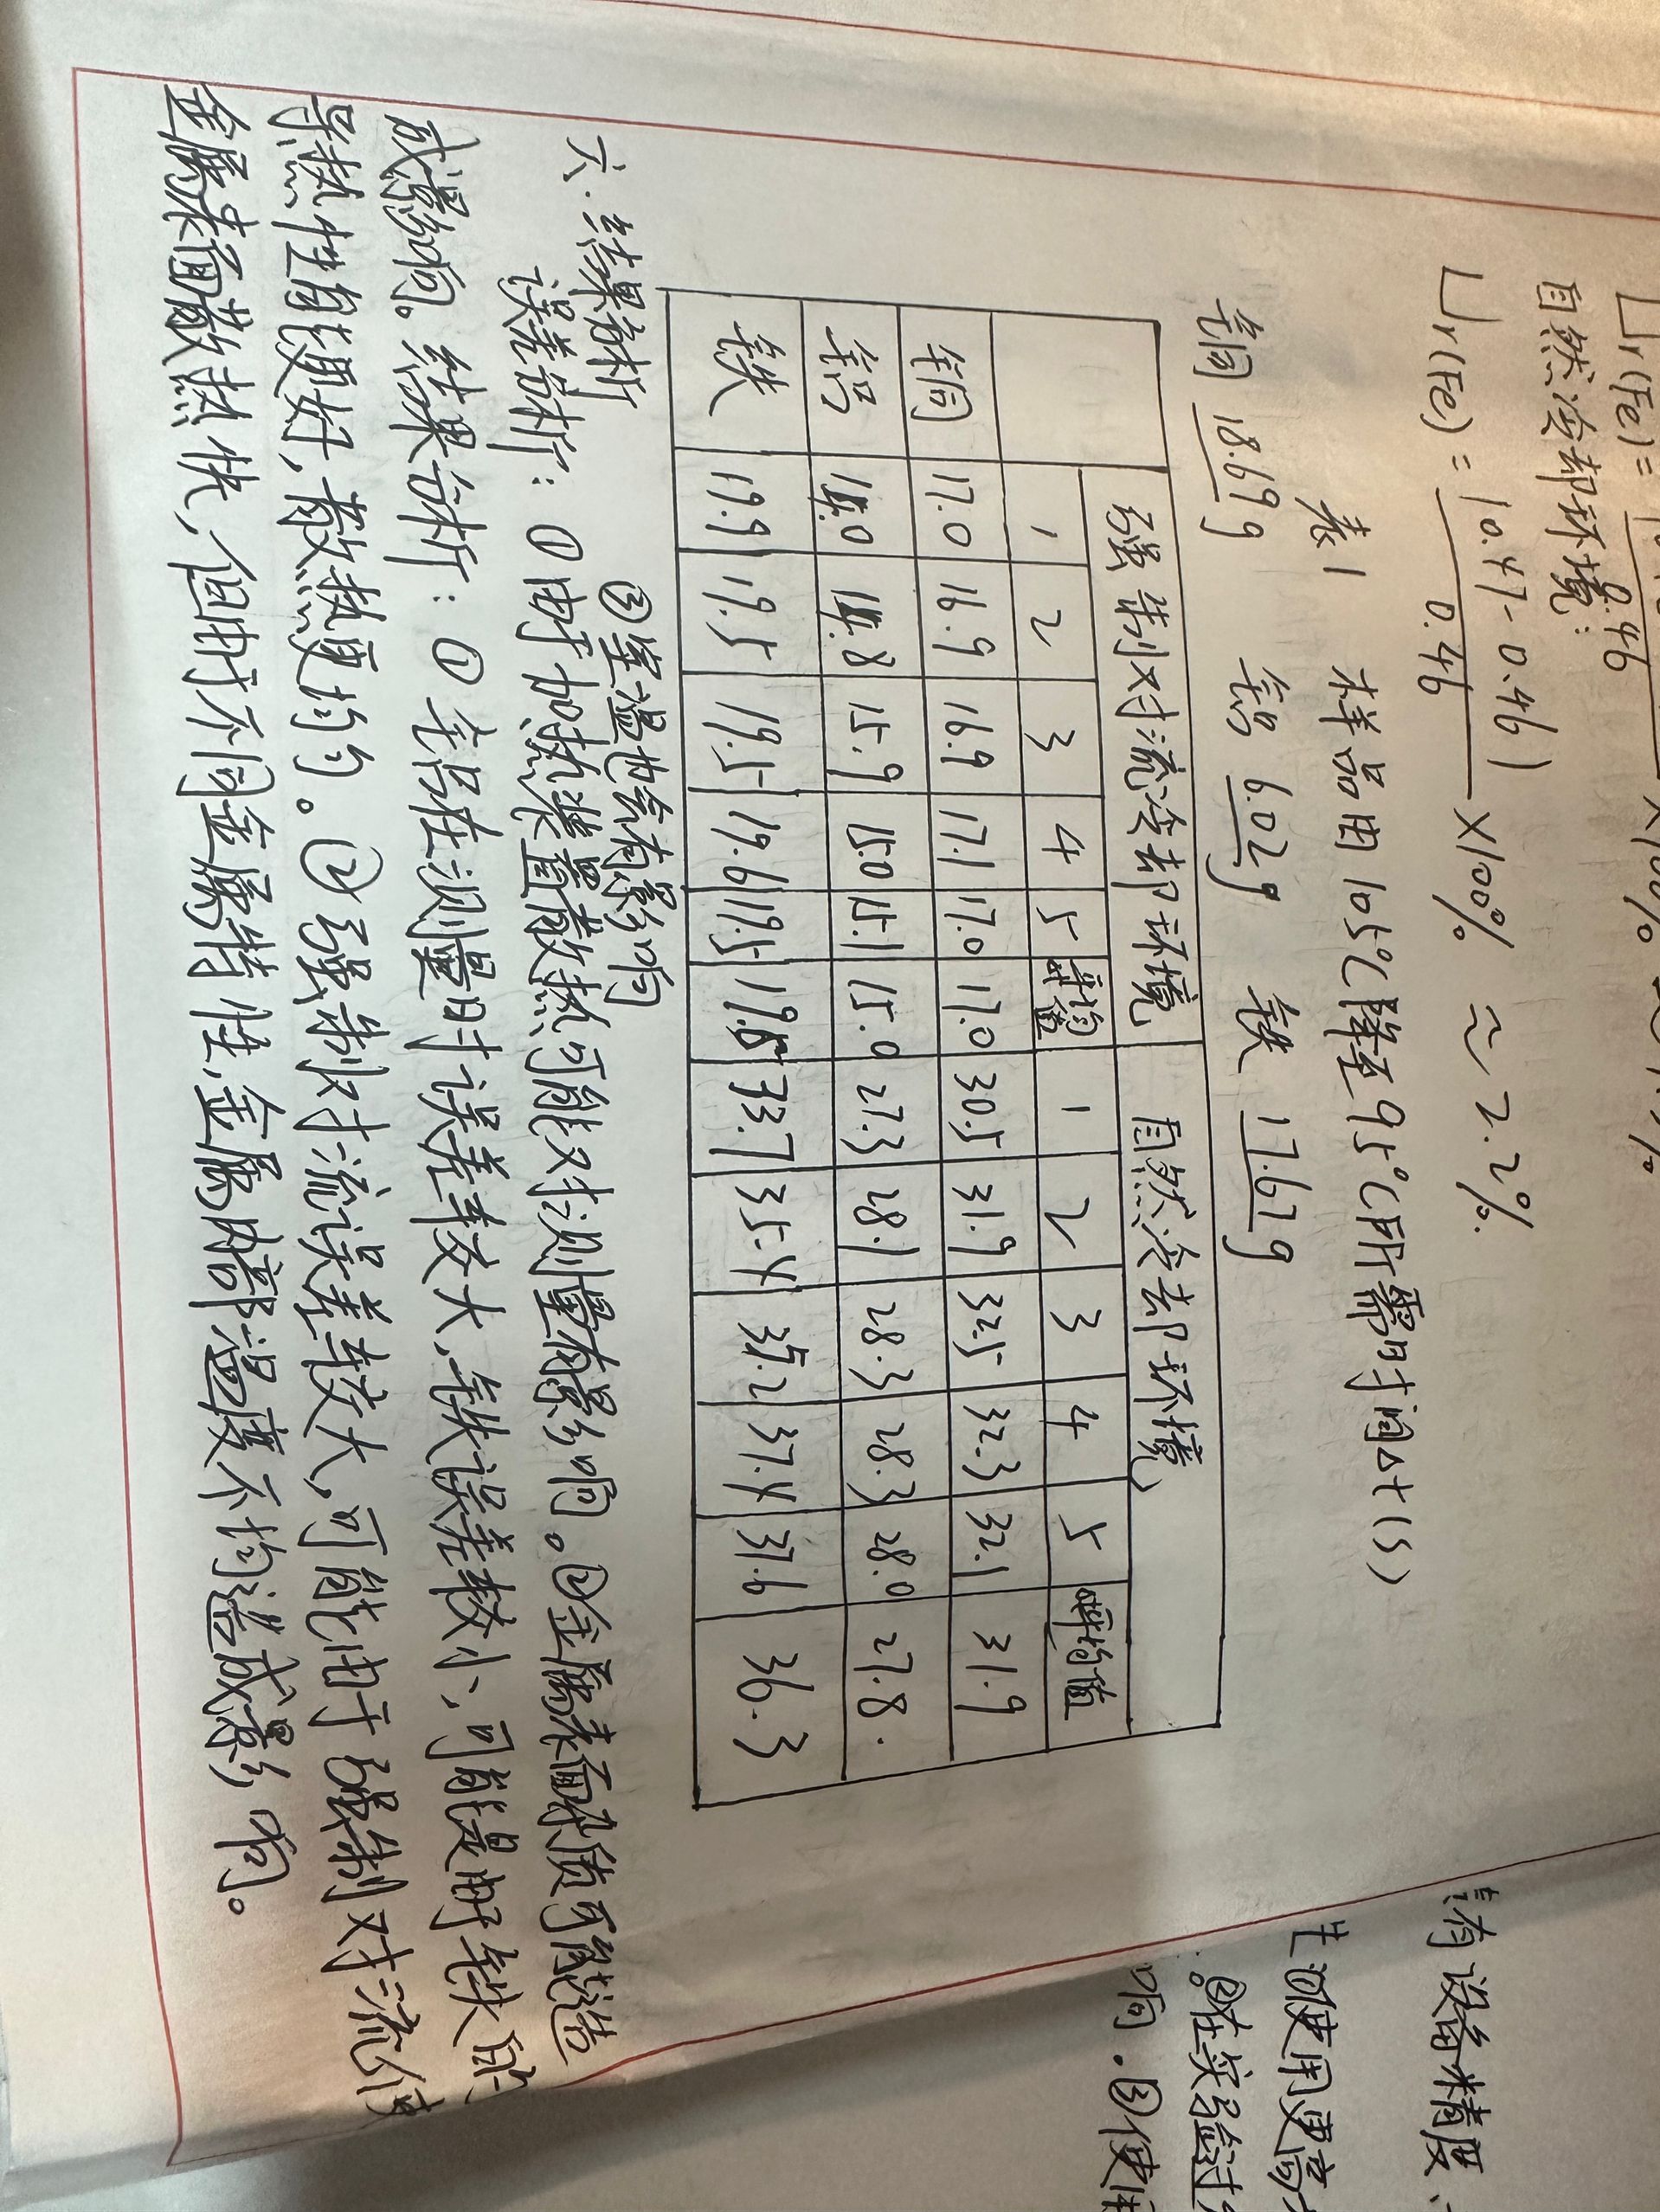 Ur(Fe)=
0.46
×100%
自然冷却环境:
Ur(Fe) = |0.47-0.46| ×100% ≈ 2.2%.
0.46
表1 样品由105℃降至95℃所需时间Δt(s)
铜 18.69g 铝 6.02g 铁 17.67g
强制对流冷却环境 自然冷却环境
1 2 3 4 5 平均值 1 2 3 4 5 平均值
铜 17.0 16.9 16.9 17.1 17.0 17.0 30.5 31.9 32.5 32.3 32.1 31.9
铝 14.0 14.8 15.9 15.0 15.1 15.0 27.3 28.1 28.3 28.3 28.0 27.8.
铁 19.9 19.5 19.5 19.6 19.5 19.6 33.7 35.4 35.2 37.4 37.6 36.3
③室温也会有影响
六.结果解析
误差解析:①由于加热装置散热可能对测量有影响。②金属表面杂质可能造
成影响。结果分析:①铝在测量时误差较大,铁误差较小,可能是由于铁的
导热性能更好,散热更均匀。②强制对流误差较大,可能由于强制对流使
金属表面散热快,但由于不同金属特性,金属内部温度不均造成影响。
有设备精度、
使用更高
②在实验过
响.③使用